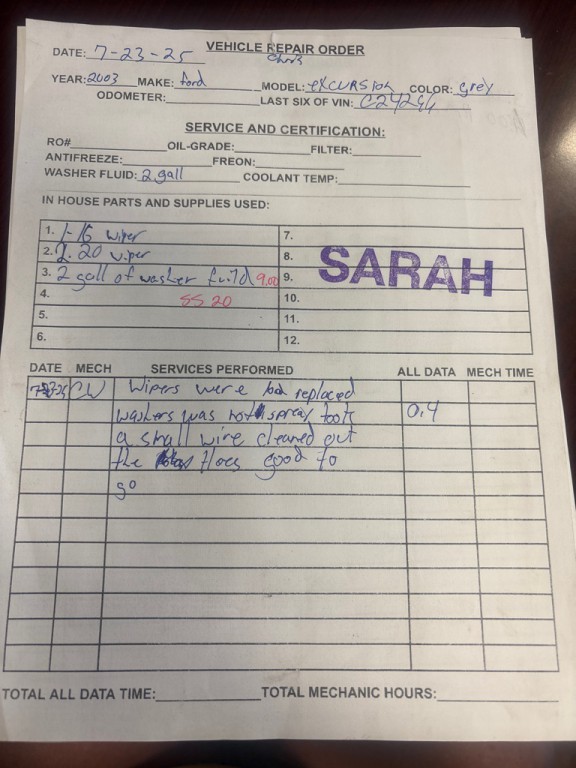 VEHICLE REPAIR ORDER
DATE: 7-23-25
YEAR: 2003 MAKE: ford MODEL: excursion COLOR: grey
ODOMETER: LAST SIX OF VIN: C24294
SERVICE AND CERTIFICATION:
RO# OIL-GRADE: FILTER:
ANTIFREEZE: FREON:
WASHER FLUID: 2 gall COOLANT TEMP:
IN HOUSE PARTS AND SUPPLIES USED:
1. 1-16 wiper 7.
2. 1. 20 wiper 8.
SARAH
3. 2 gall of washer fuild 9.00 9.
4. SS 20 10.
5. 11.
6. 12.
DATE MECH SERVICES PERFORMED ALL DATA MECH TIME
CW Wipers were bad replaced
washers was not spray took 0.4
a small wire cleaned out
the good to
go
TOTAL ALL DATA TIME: TOTAL MECHANIC HOURS: